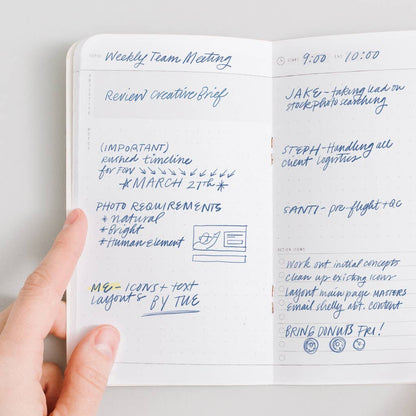 Weekly Team Meeting
Review Creative Brief
(IMPORTANT)
Rushed timeline
for FOW
*MARCH 27th*
PHOTO REQUIREMENTS
*natural
*Bright
*Human Element
ME- ICONS + text
Layouts BY TUE
9:00 10:00
JAKE - taking lead on
stock photo searching
STEPH - Handling all
client logistics
SANTI - pre-flight + QC
ACTION ITEMS
Work out initial concepts
Clean up existing icons
Layout main page MASTERS
email shelly abt. content
BRING DONUTS FRI!